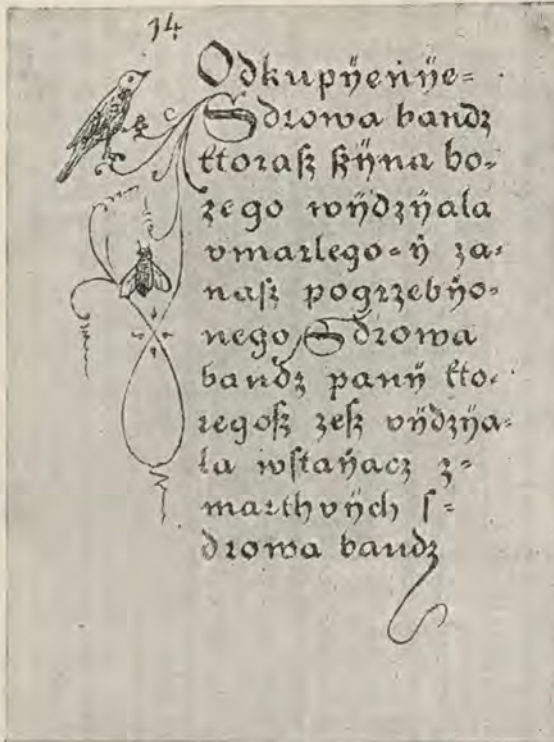 14
Odkupÿenÿe=
Sdrowa bandz
ktoraſz ſzÿna bo=
zego wÿdzÿala
vmarlego=ÿ za=
naſz pogrzebÿo=
nego Sdrowa
bandz panÿ kto=
regoſz zeſz vÿdzÿa=
la wſtaÿacz z=
marthvÿch ſ=
drowa bandz